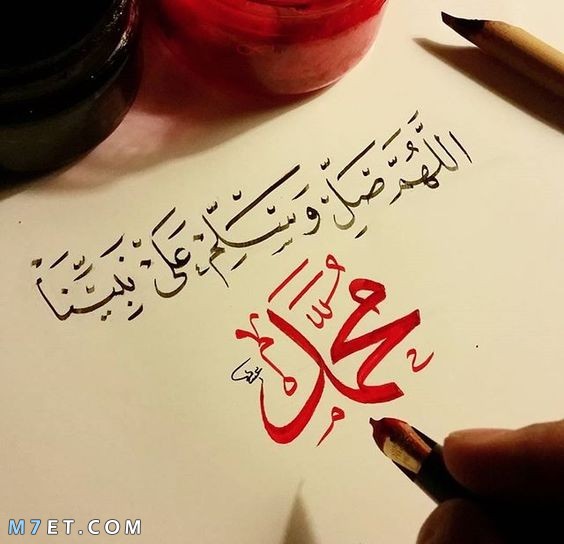 اللَّهُمَّ صَلِّ وَسَلِّمْ عَلَىٰ نَبِيِّنَا
مُحَمَّد
M7ET.COM